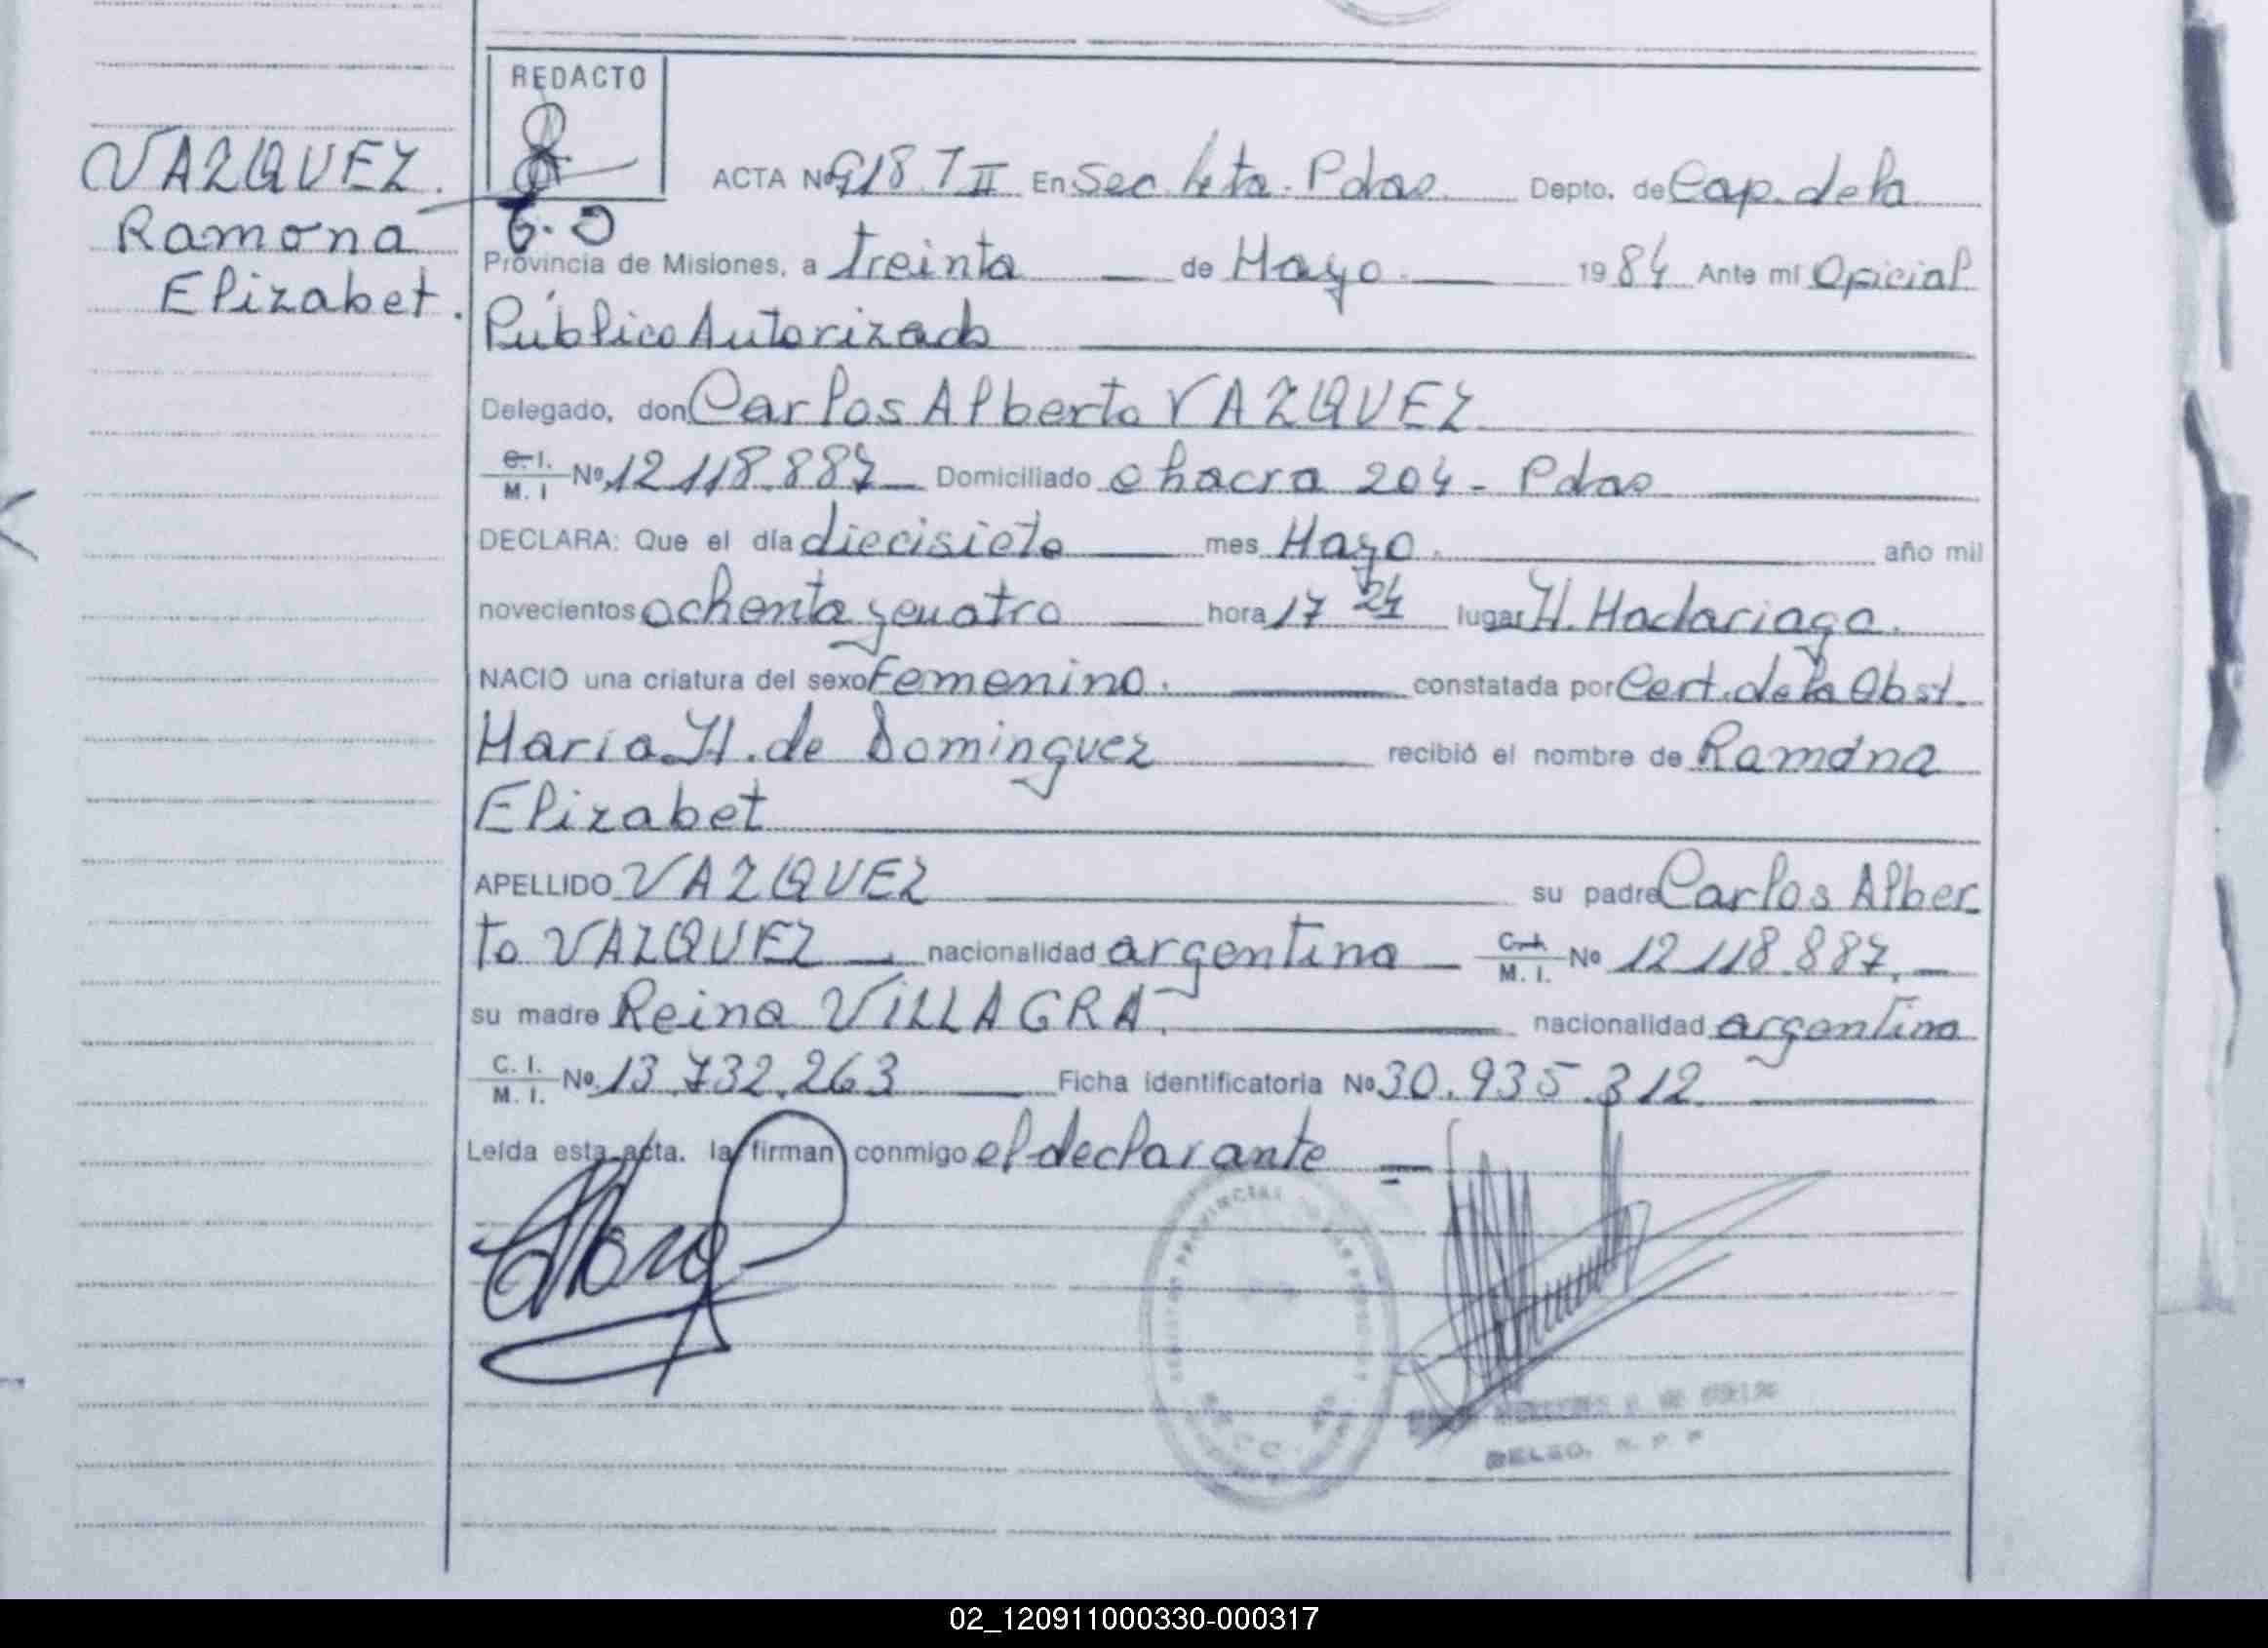 VAZQUEZ.
Ramona
Elizabet.
REDACTO
ACTA Nº 918 T II En Sec. 4ta. Pdas. Depto. de Cap. de la
Provincia de Misiones, a treinta de Mayo 1984 Ante mí Oficial
Público Autorizado
Delegado, don Carlos Alberto VAZQUEZ
C. I. M. I Nº 12.118.887 Domiciliado chacra 204 - Pdas
DECLARA: Que el día diecisiete mes Mayo. año mil
novecientos ochenta y cuatro hora 17 24 lugar H. Madariaga.
NACIO una criatura del sexo Femenino. constatada por Cert. de la Obst.
María H. de Dominguez recibió el nombre de Ramona
Elizabet
APELLIDO VAZQUEZ su padre Carlos Alber
to VAZQUEZ nacionalidad argentina C. I. M. I. Nº 12.118.887.
su madre Reina VILLAGRA. nacionalidad argentina
C. I. M. I. Nº 13.732.263 Ficha identificatoria Nº 30.935.312.
Leída esta acta. la firman conmigo el declarante
PROVINCIAL DE LAS PERSONAS
DELEG. R. P. P
02_120911000330-000317